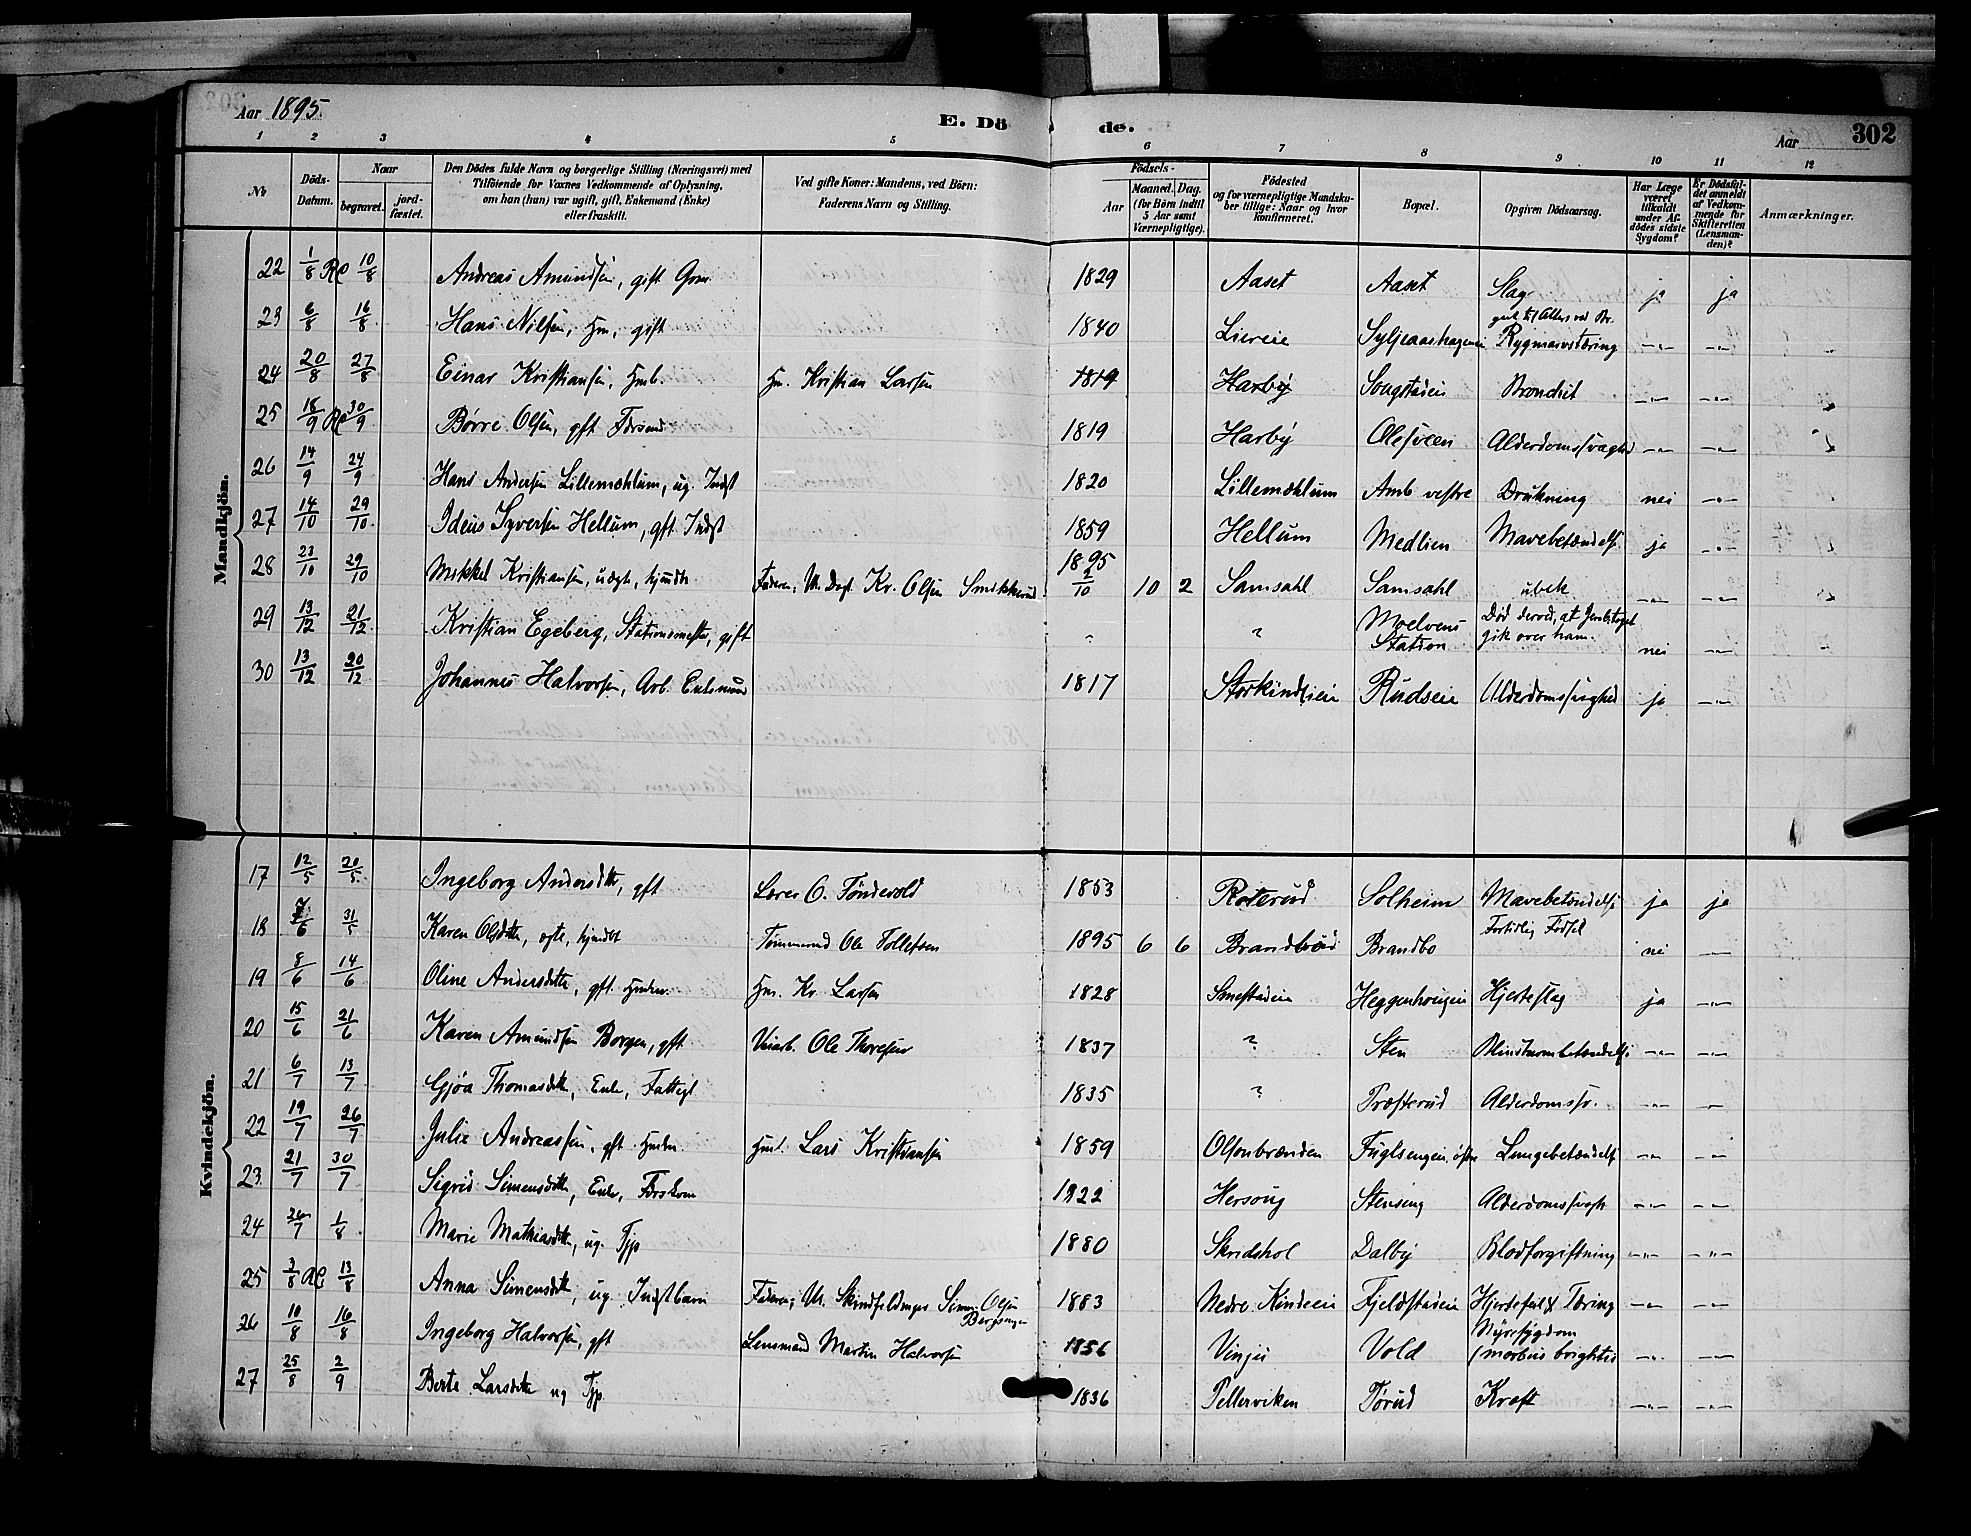 Aar 1895.
E. Döde.
Aar 302
1 2 3 4 5 6 7 8 9 10 11 12
No
Döds-Datum.
Naar
begravet.
jord-fæstet.
Den Dödes fulde Navn og borgerlige Stilling (Næringsvei) med
Tilföiende for Voxnes Vedkommende af Oplysning,
om han (hun) var ugift, gift, Enkemand (Enke)
eller fraskilt.
Ved gifte Koner: Mandens, ved Börn:
Faderens Navn og Stilling.
Födsels-
Aar
Maaned. Dag.
(for Börn indtil
5 Aar samt
Værnepligtige).
Födested
og for værnepligtige Mandska-
ber tillige: Naar og hvor
konfirmeret.
Bopæl.
Opgiven Dödsaarsag.
Har Læge
været
tilkaldt
under Af-
dödes sidste
Sygdom?
Er Dödsfal-
det anmeldt
af Vedkom-
mende for
Skifteretten
(Lensman-
den)?
Anmærkninger.
Mandkjön.
22 1/8 10/8 Andreas Amundsen, gift 1829 Aaset Aaset Slag ja ja
23 6/8 16/8 Hans Nilsen, Hm, gift 1840 Liereie Rygmarvstæring -"- -"-
24 20/8 27/8 Einar Kristiansen, Hmb. Hm. Kristian Larsen 1819 Harby Songstadeie Bronchit -"- -"-
25 18/9 30/9 Børre Olsen, gft Forsmd 1819 Harby Olesveen Alderdomssvaghd -"- -"-
26 14/9 24/9 Hans Andersen Lillemæhlum, ug. Indst 1820 Lillemæhlum Amb vestre Drukning nei -"-
27 14/10 29/10 Ideus Syversen Hellum, gft. Indst 1859 Hellum Medlien Mavebetændelse ja -"-
28 23/10 29/10 Mikkel Kristiansen, uægt, hjmdbt Faderen; U. Kr. Olsen Smikkerud 1895 2/10 10 2 Samsahl Samsahl ubek -"- -"-
29 13/12 21/12 Kristian Egeberg, Stationsmester, gift - ? Moelvens
Station Død derved, at Jernb.toget
gik over ham. nei -"-
30 13/12 20/12 Johannes Halvorsen, Arb. Enkemand 1817 Storkindlieie Rudseie Alderdomssvaghed ja -"-
Kvindekjön.
17 12/5 20/5 Ingeborg Andersdtr, gft Lars O. Tøndevold 1853 Roterud Solheim Mavebetændelse ja ja
18 31/5 Karen Olsdtr, ægte, hjmdbt Tømmermd Ole Tollefsen 1895 6 6 Brandbo Fortidlig Fødsel nei -"-
19 8/6 14/6 Oline Andersdtr, gft. Hm. Kr. Larsen 1828 Smestadeie Heggenhougen Hjerteslag ja -"-
20 15/6 21/6 Karen Amundsen Borgen, gft Ole Thoresen 1837 ? Sten Blindtarmbetændelse -"- -"-
21 6/7 13/7 Gjøa Thomasdtr, Enke, Fattigl 1835 ? Præsterud Alderdomssv. -"- -"-
22 19/7 26/7 Julie Andreassen, gft Lars Kristiansen 1859 Olsonbrænden Fuglsengen østre Lungebetændelse -"- -"-
23 21/7 30/7 Sigrid Simensdtr, Enke, Forskone 1822 Hersoug Stenseng Alderdomssvagh -"- -"-
24 1/8 Marie Mathiasdtr, ug. Tjp 1880 Skredshol Dalby Blodforgiftning -"- -"-
25 3/8 13/8 Anna Simensdtr, ug. Indstbarn Faderen; U. Skindfeldmager Simen Olsen
Bergsengen 1883 Nedre Kindeeie Fjeldstadeie Hjertefeil & Tæring -"- -"-
26 10/8 16/8 Ingeborg Halvorsen, gft Lensmand Martin Halvorsen 1856 Vinju Vold Nyresygdom
(morbus brightii -"- -"-
27 25/8 2/9 Berte Larsdtr ug Tjp 1836 Pellerviken Tørud Kræft -"- -"-